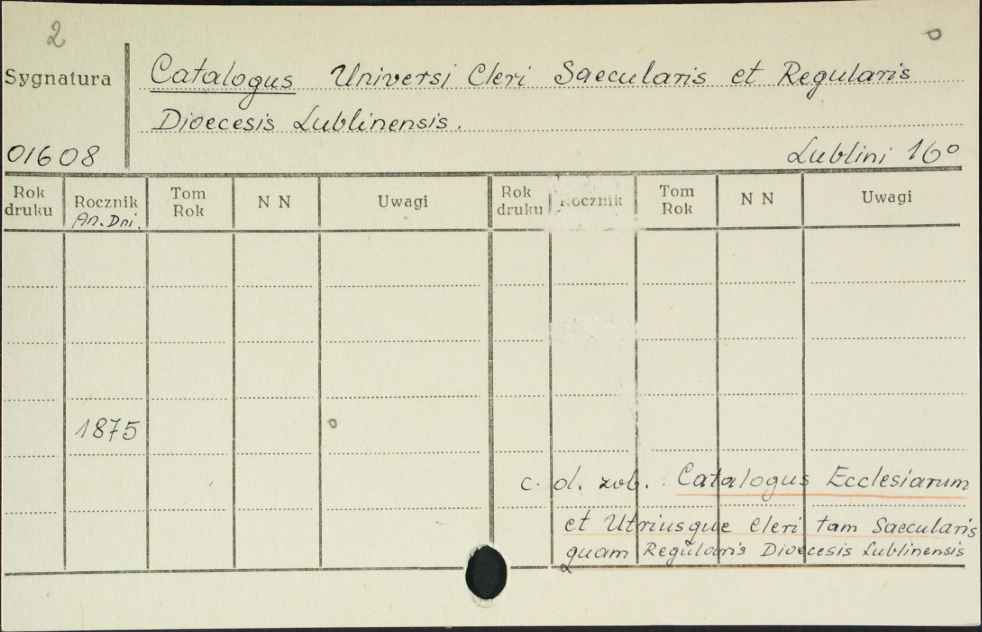 2
Sygnatura
Catalogus Universi Cleri Saecularis et Regularis
Dioecesis Lublinensis.
01608
Lublini 16°
Rok druku Rocznik An. Dni. Tom Rok N N Uwagi Rok druku Rocznik Tom Rok N N Uwagi
1875
c. d. zob. Catalogus Ecclesiarum
et Utriusque Cleri tam Saecularis
quam Regularis Dioecesis Lublinensis